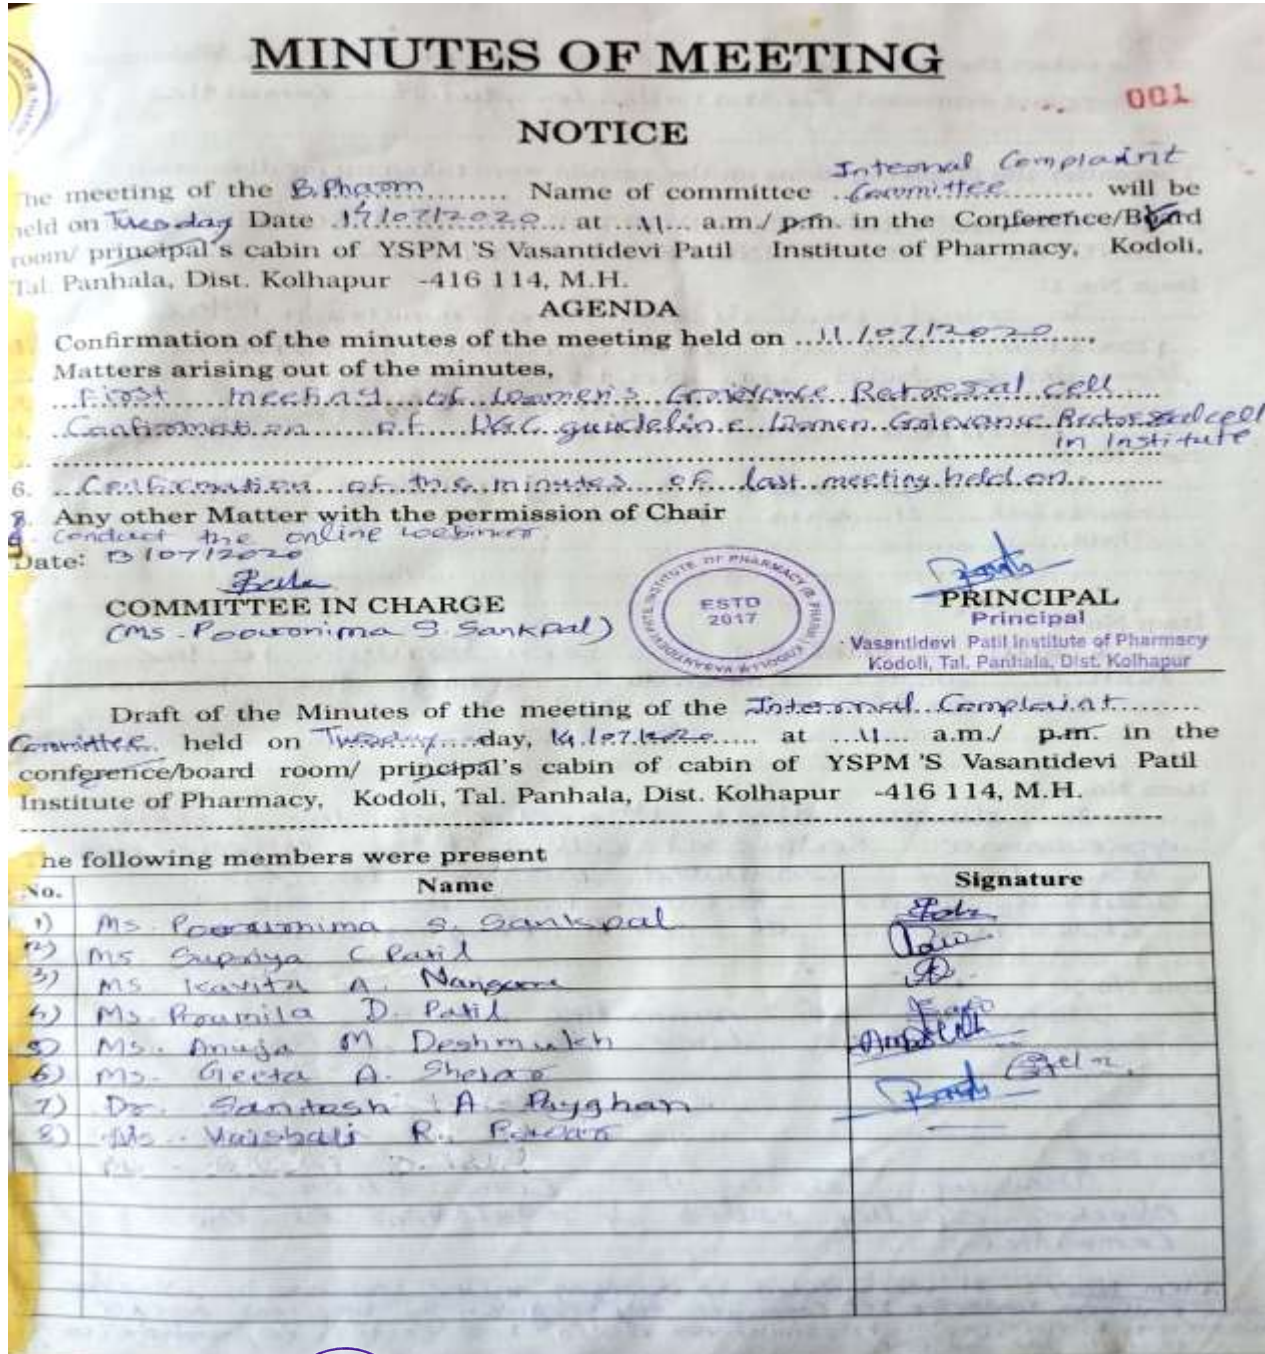 MINUTES OF MEETING
001
NOTICE
Internal Complaint
The meeting of the B.Pharm......... Name of committee ..Committee.......... will be
held on Tuesday Date 14/07/2020... at ..11... a.m./ p.m. in the Conference/Board
room/ principal's cabin of YSPM 'S Vasantidevi Patil Institute of Pharmacy, Kodoli,
Tal. Panhala, Dist. Kolhapur -416 114, M.H.
AGENDA
Confirmation of the minutes of the meeting held on ..11/07/2020.....,
Matters arising out of the minutes,
First meeting of Women's Grievance Redressal cell
Confirmation of UGC guideline Women Grievance Redressal cell
in institute
6. Confirmation of the minutes of last meeting held on
Any other Matter with the permission of Chair
Conduct the online webinar
Date: 13/07/2020
COMMITTEE IN CHARGE
(Ms. Poournima S. Sankpal)
ESTD
2017
PRINCIPAL
Principal
Vasantidevi Patil Institute of Pharmacy
Kodoli, Tal. Panhala, Dist. Kolhapur
Draft of the Minutes of the meeting of the Internal Complaint
Committee held on Tuesday....day, 14/07/2020..... at ...11... a.m./ p.m. in the
conference/board room/ principal's cabin of cabin of YSPM 'S Vasantidevi Patil
Institute of Pharmacy, Kodoli, Tal. Panhala, Dist. Kolhapur -416 114, M.H.
The following members were present
No. Name Signature
1) Ms. Poournima S. Sankpal
2) Ms Supriya C Patil
3) Ms. Kavita A. Nangare
4) Ms. Proumila D. Patil
5) Ms. Anuja M Deshmukh
6) Ms. Geeta A. Shelar
7) Dr. Santosh A Payghan
8) Ms. Vaishali R. Powar